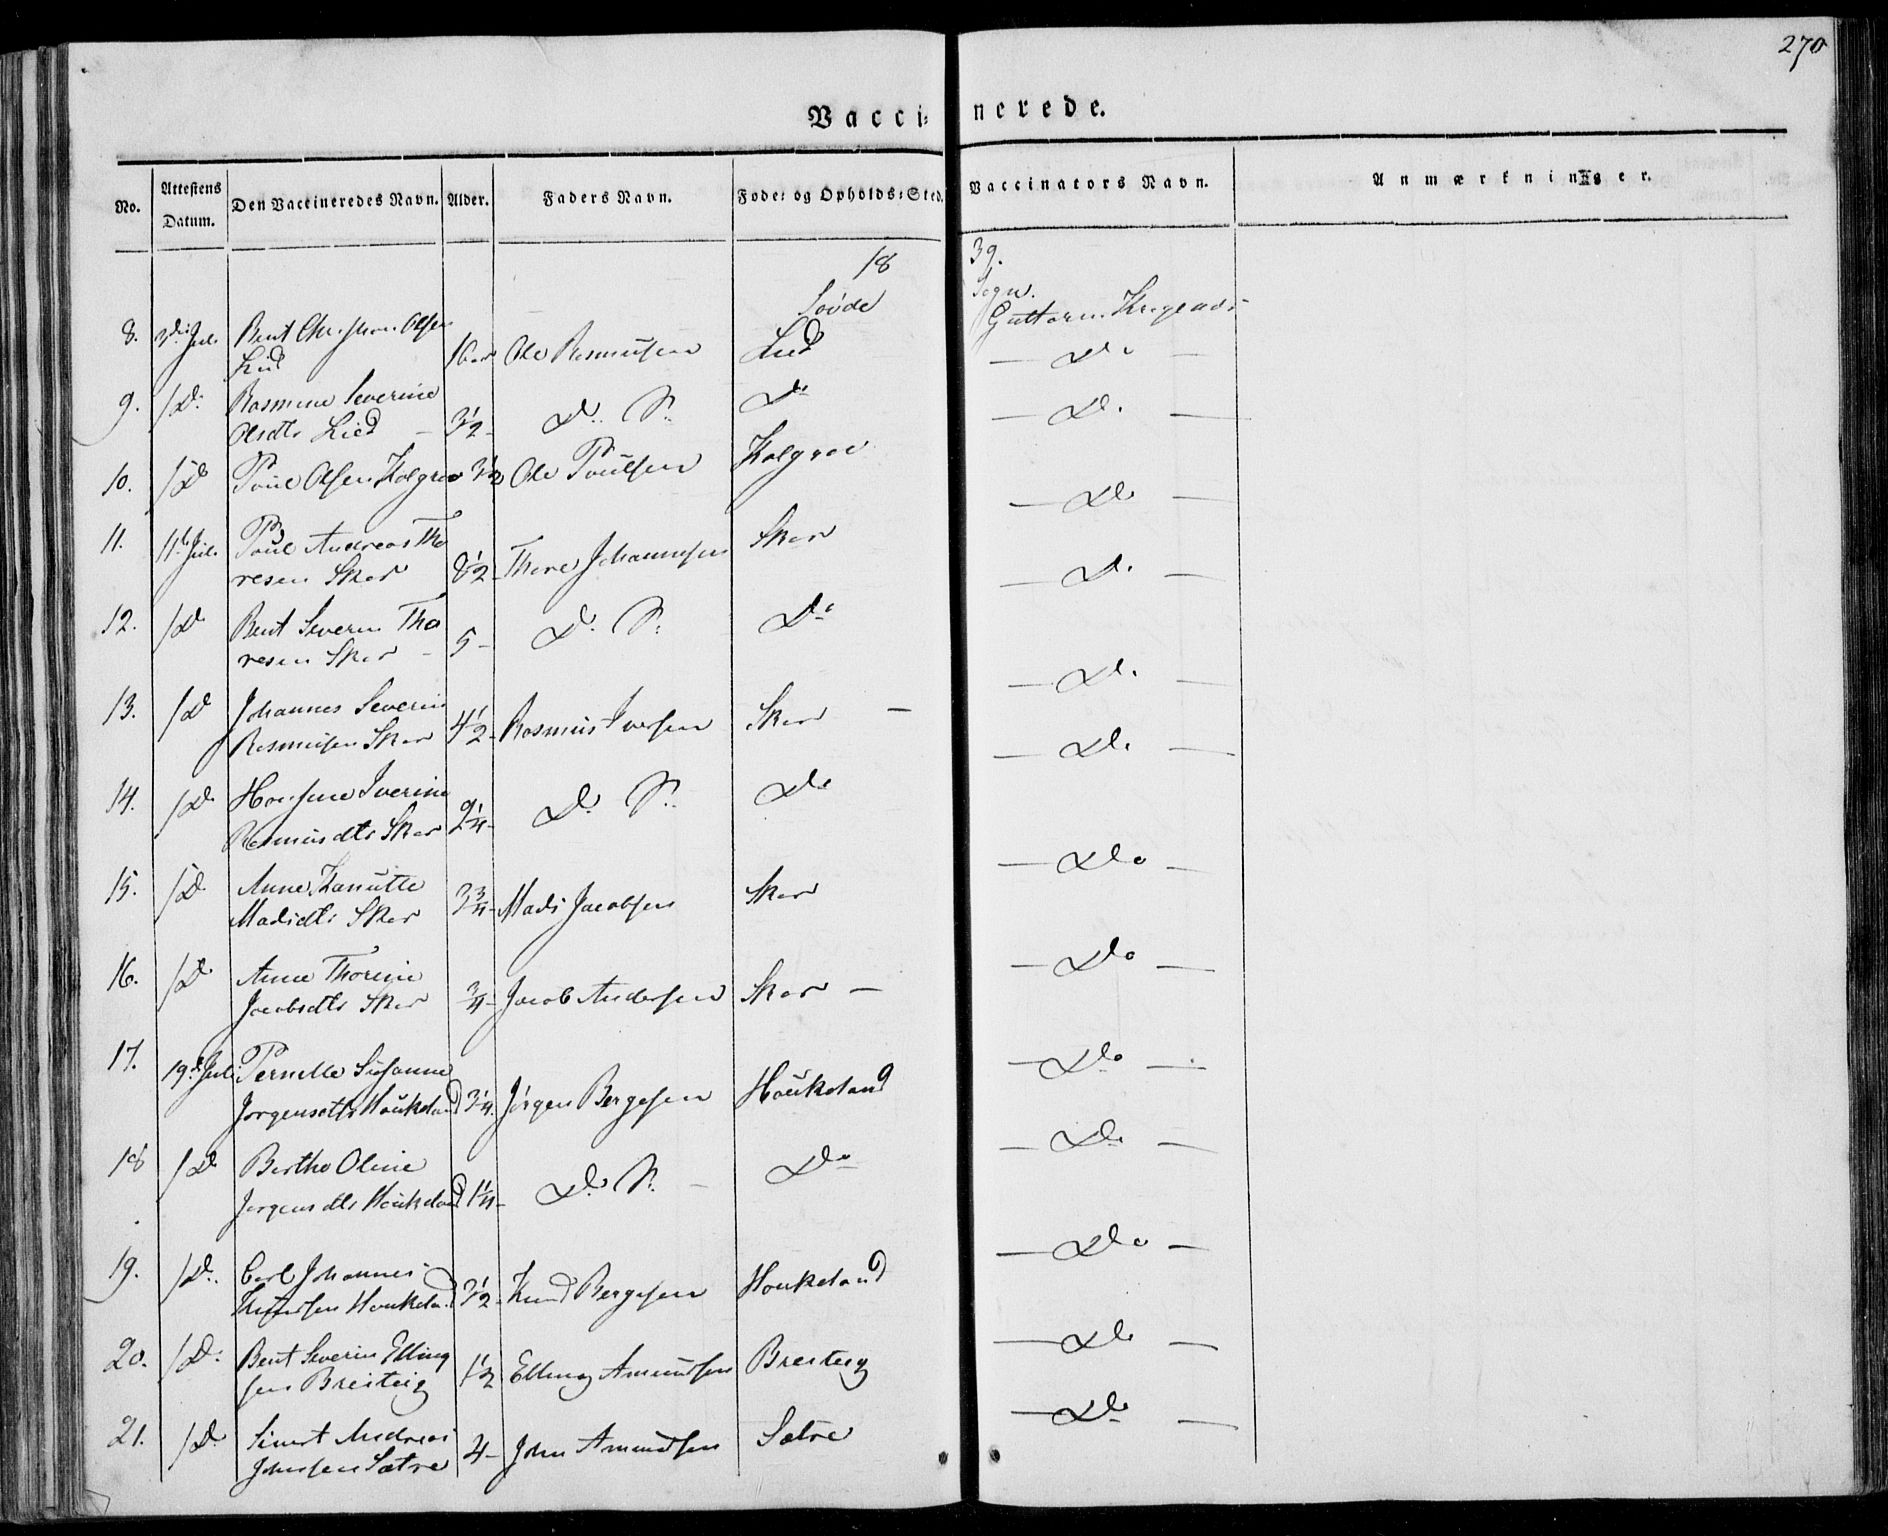 270
Vacci- nerede.
No. Attestens Datum. Den Vaccineredes Navn. Alder. Faders Navn. Fode- og Opholds-Sted. Vaccinators Navn. Anmærkninger.
18 39.
Sovde Sogn.
8. 3die Jul. Bent Christian Olsen Lied Ole Rasmusen Lied Guttorm
— Do —
9. /D. Rasmine Severine
Olsdtr Lied — 3½ - D. S. Do — D. —
10. /D Poul Olsen Kolgroe 3½ Ole Poulsen Kolgroe — D. —
11. 11te Jul. Poul Andreas Tho
resen Skor 8½ - Thore Johannesen Skor — D. —
12. /D Bent Severin Tho
resen Skor - 5 - D. S. Do — D. —
13. /D Johannes Severin
Rasmusen Skor 4½ - Rasmus Iversen Skor — — D. —
14. /D Iverine
Rasmusdtr Skor 2¼ - D. S. Do — Do —
15. /D Anne Kanutte
Madsdtr Skor 3¾ - Mads Jacobsen Skor — Do —
16. /D Anne Thorine
Jacobsdtr Skor ¾ - Jacob Andersen Skor — — Do —
17. 19de Jul. Pernille Susanne
Jorgensdtr Houkeland 3¼. Jörgen Bergesen Houkeland — Do —
18 /D Bertha Oline
Jorgensdtr Houkeland 1¼ - D. S. - Do — Do —
19. /D. Carl Johannes
Knudsen Houkeland 3½ - Knud Bergesen Houkeland — Do —
20. /D. Bent Severin Elling
sen Breiteig 1½ Elling Amundsen Breiteig — Do —
21. /D. Sivert Andreas
Johnsen Sætre 4 - John Amundsen Sætre